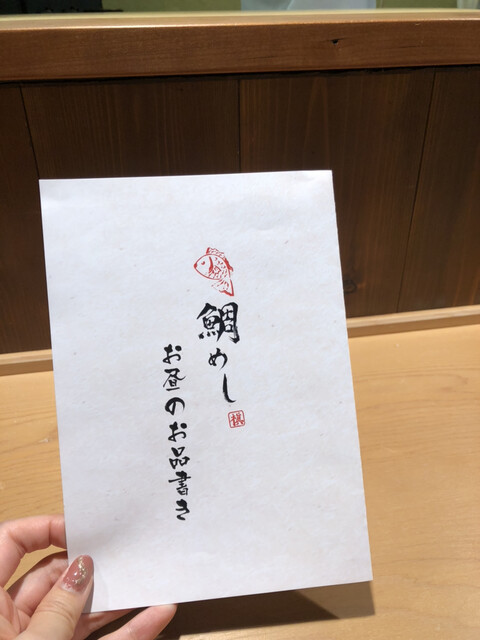 鯛めし
お昼のお品書き